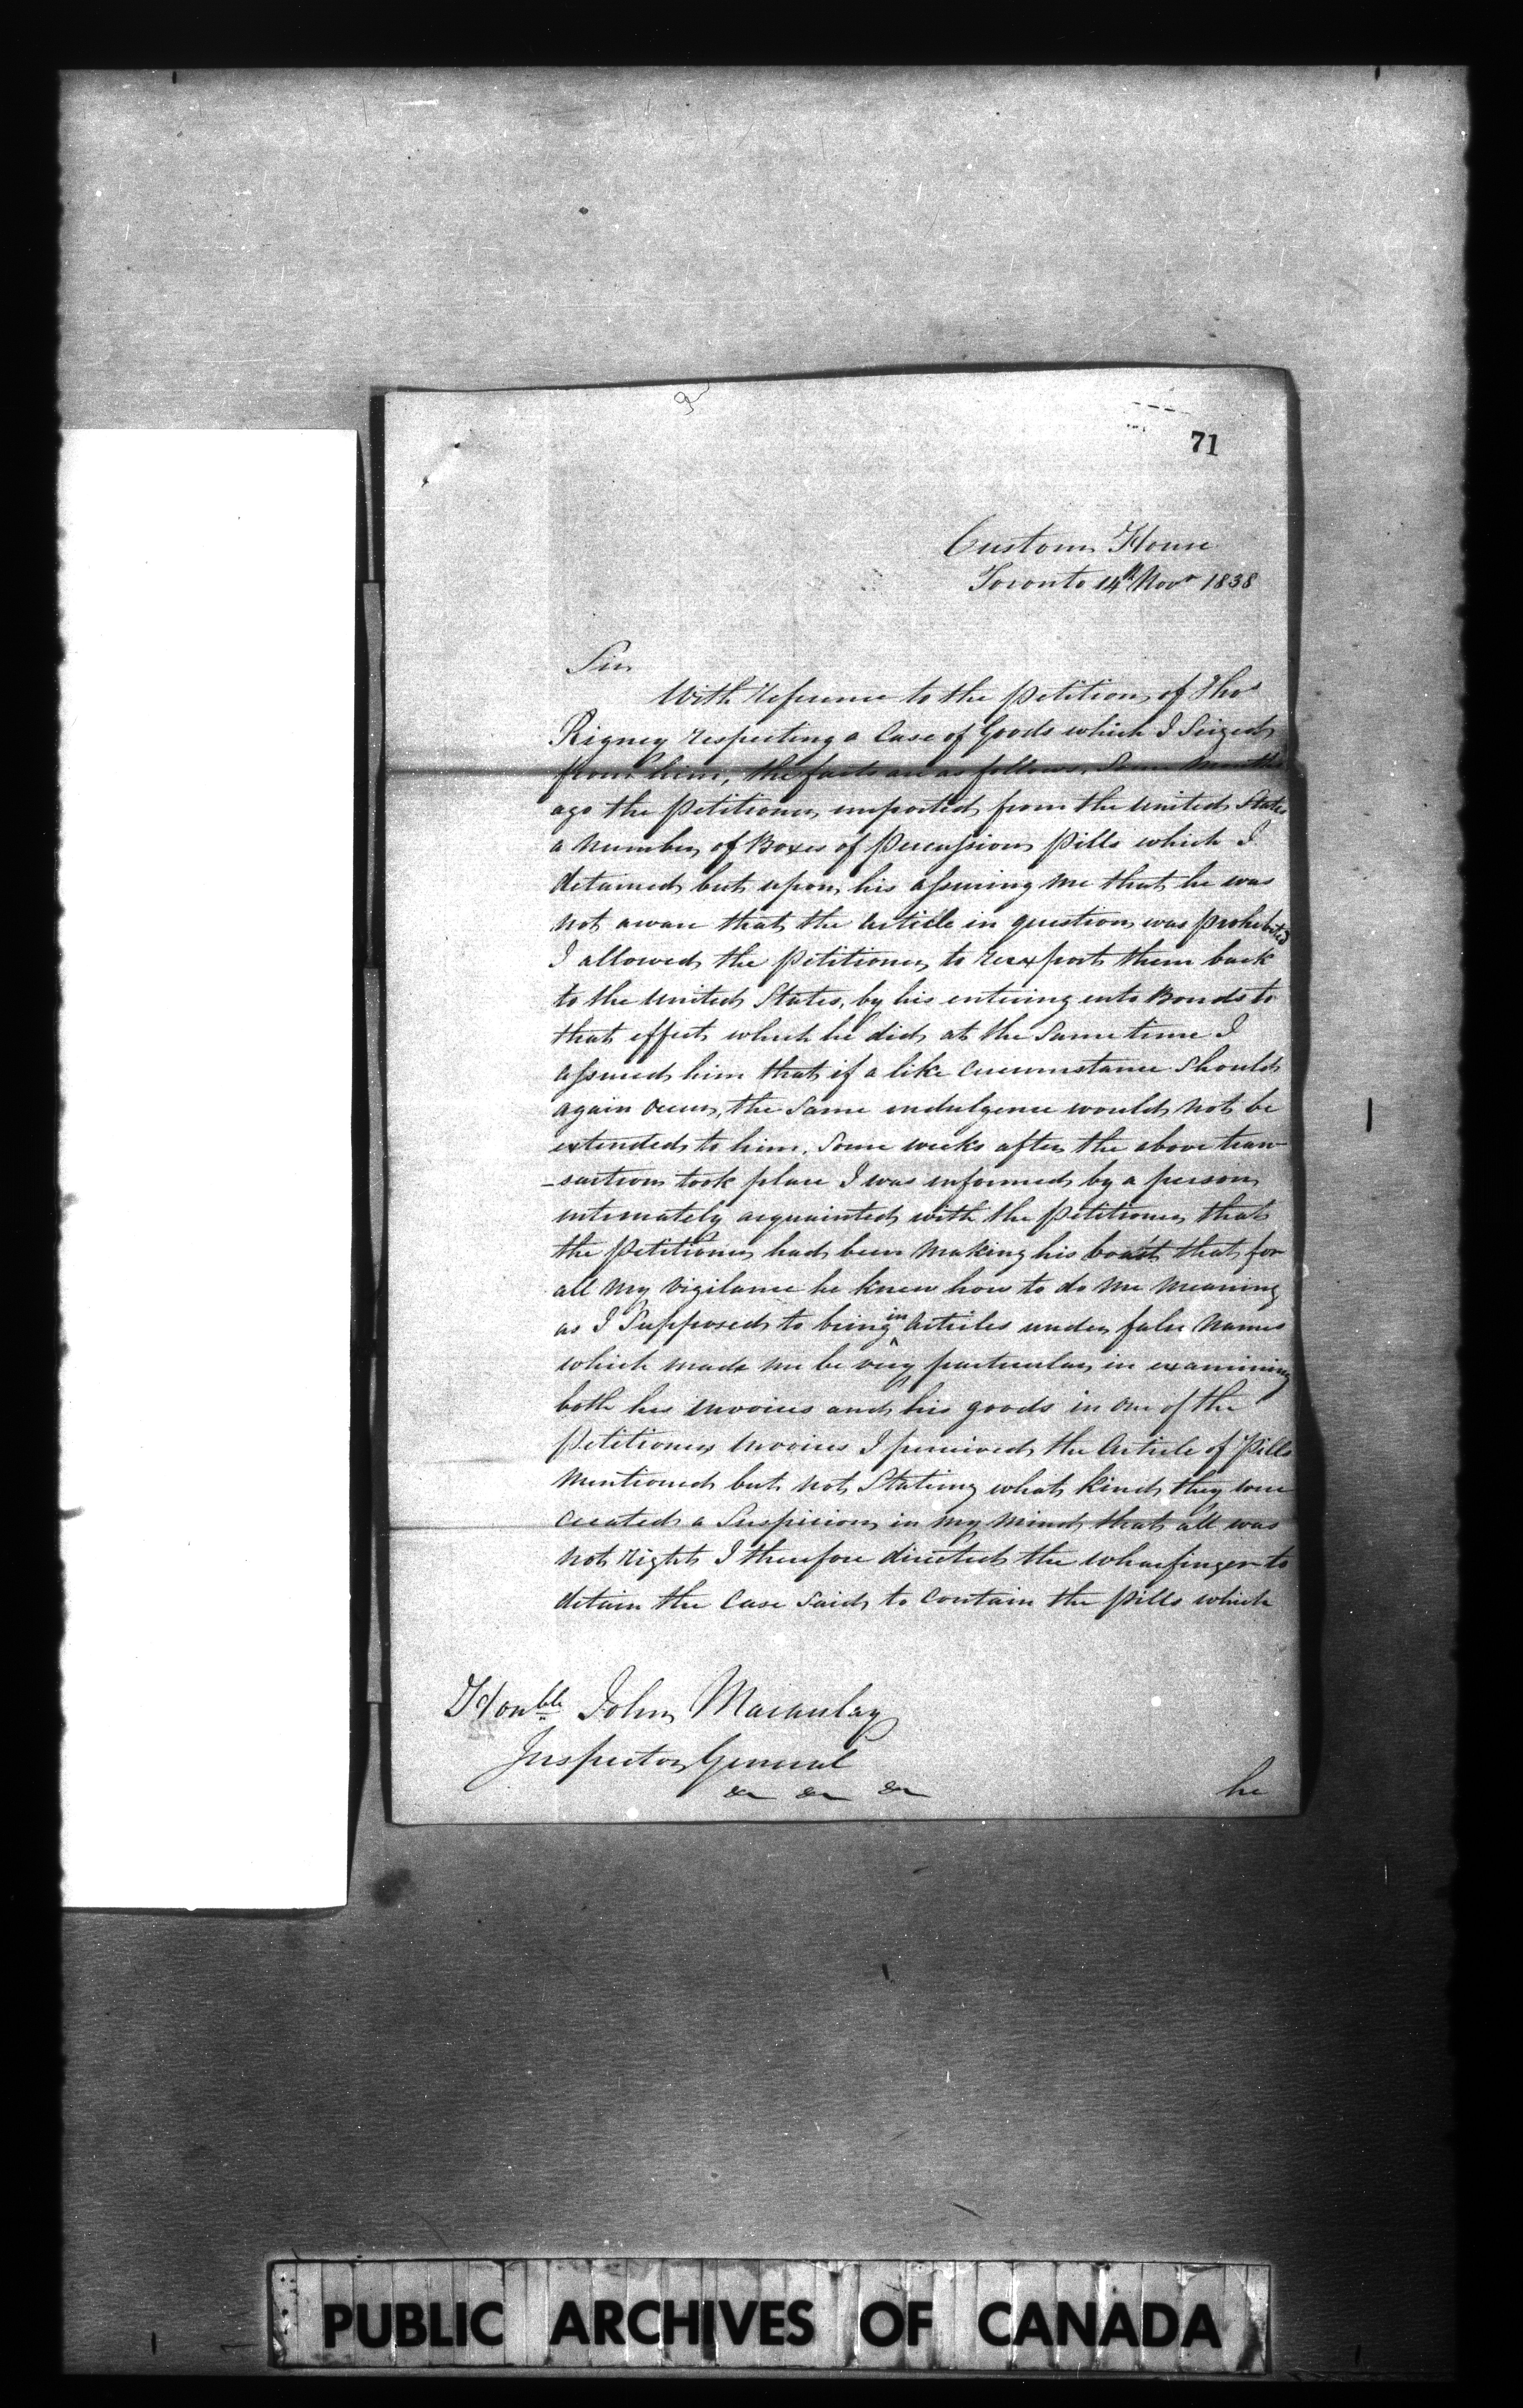 71
Custom House
Toronto 14th Novr 1838
Sir
With reference to the petition of Thos
Rigney respecting a Case of Goods which I Seized
from him, the facts are as follows, Some Months
ago the Petitioner imported from the United States
a Number of Boxes of Percussion Pills which I
detained but upon his assuring me that he was
not aware that the Article in question was prohibited
I allowed the Petitioner to reexport them back
to the United States, by his entering into Bonds to
that effect which he did at the Same time I
assured him that if a like Circumstance Should
again occur, the Same indulgence would not be
extended to him. Some weeks after the above tran-
-saction took place I was informed by a person
intimately acquainted with the Petitioner that
the Petitioner had been making his boast that for
all my vigilance he knew how to do me meaning
as I Supposed to bring in Articles under false Names
which made me be very particular in examining
both his invoices and his goods in one of the
Petitioners invoices I perceived the Article of Pills
Mentioned but not Stating what kind they were
Created a Suspicion in my Mind that all was
not right I therefore directed the wharfinger to
detain the Case Said to Contain the Pills which
Honble John Macaulay
Inspector General
&c &c &c
he
PUBLIC ARCHIVES OF CANADA